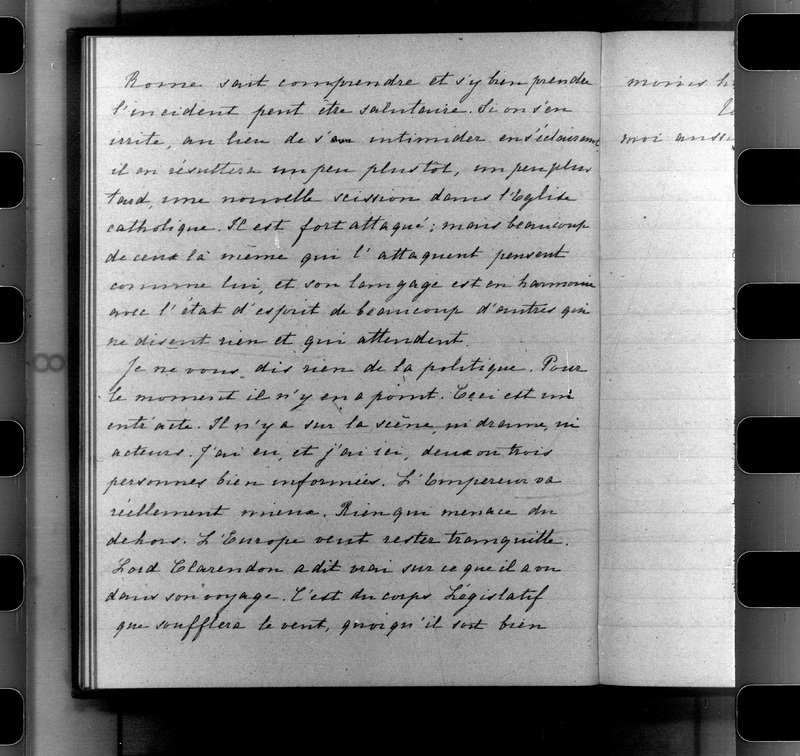 Rome sait comprendre et s'y bien prendre
l'incident peut être salutaire. Si on s'en
irrite, au lieu de s'en intimider en s'éclairant,
il en résultera un peu plus tot, un peu plus
tard, une nouvelle scission dans l'Eglise
catholique. Il est fort attaqué ; mais beaucoup
de ceux là même qui l'attaquent pensent
comme lui, et son langage est en harmonie
avec l'état d'esprit de beaucoup d'autres qui
ne disent rien et qui attendent.
Je ne vous dis rien de la politique. Pour
le moment il n'y en a point. Ceci est un
entr'acte. Il n'y a sur la scène ni drame, ni
acteurs. J'ai eu, et j'ai ici, deux ou trois
personnes bien informées. L'Empereur va
réellement mieux. Rien qui menace du
dehors. L'Europe veut rester tranquille.
Lord Clarendon a dit vrai sur ce que il a vu
dans son voyage. C'est du corps Législatif
que soufflera le vent, quoiqu'il soit bien
moins
moi aussi